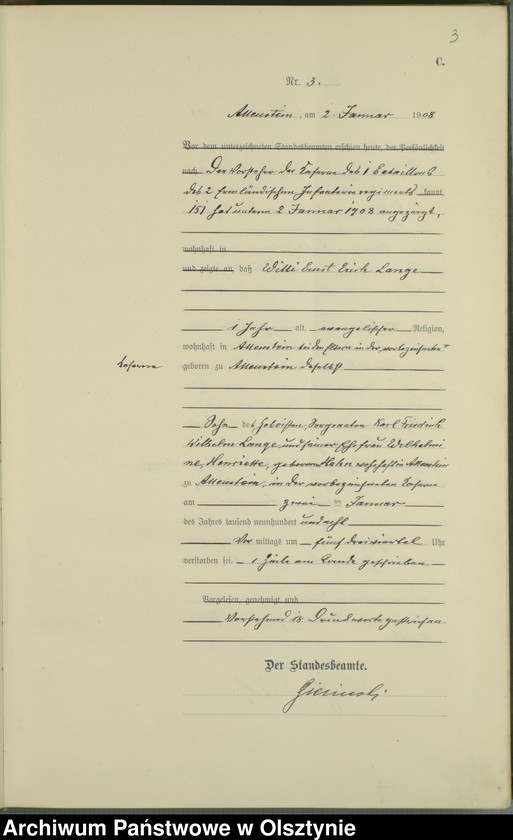 3
C.
Nr. 3.
Allenstein, am 2. Januar 1908
Vor dem unterzeichneten Standesbeamten erschien heute, der Persönlichkeit
nach Der Vorsteher der Kaserne des 1 Bataillons
des 2 Ermländischen Infanterieregiments kannt,
151 hat unterm 2 Januar 1908 angezeigt,
wohnhaft in
und zeigte an, daß Willi Ernst Erich Lange
1 Jahr alt, evangelischer Religion,
wohnhaft in Allenstein bei den Eltern in der vorbezeichneten
Kaserne
geboren zu Allenstein daselbst
Sohn des Hoboisten, Sergeanten Karl Friedrich
Wilhelm Lange und seiner Ehefrau Wilhelmi-
ne, Henriette, geborene Hahn wohnhaft in Allenstein
zu Allenstein, in der vorbezeichneten Kaserne
am zwei ten Januar
des Jahres tausend neunhundert und acht
Vor mittags um fünf dreiviertel Uhr
verstorben sei. 1 Zeile am Rande geschrieben
Vorgelesen, genehmigt und
Vorstehend 18 Druckworte gestrichen
Der Standesbeamte.
Archiwum Państwowe w Olsztynie